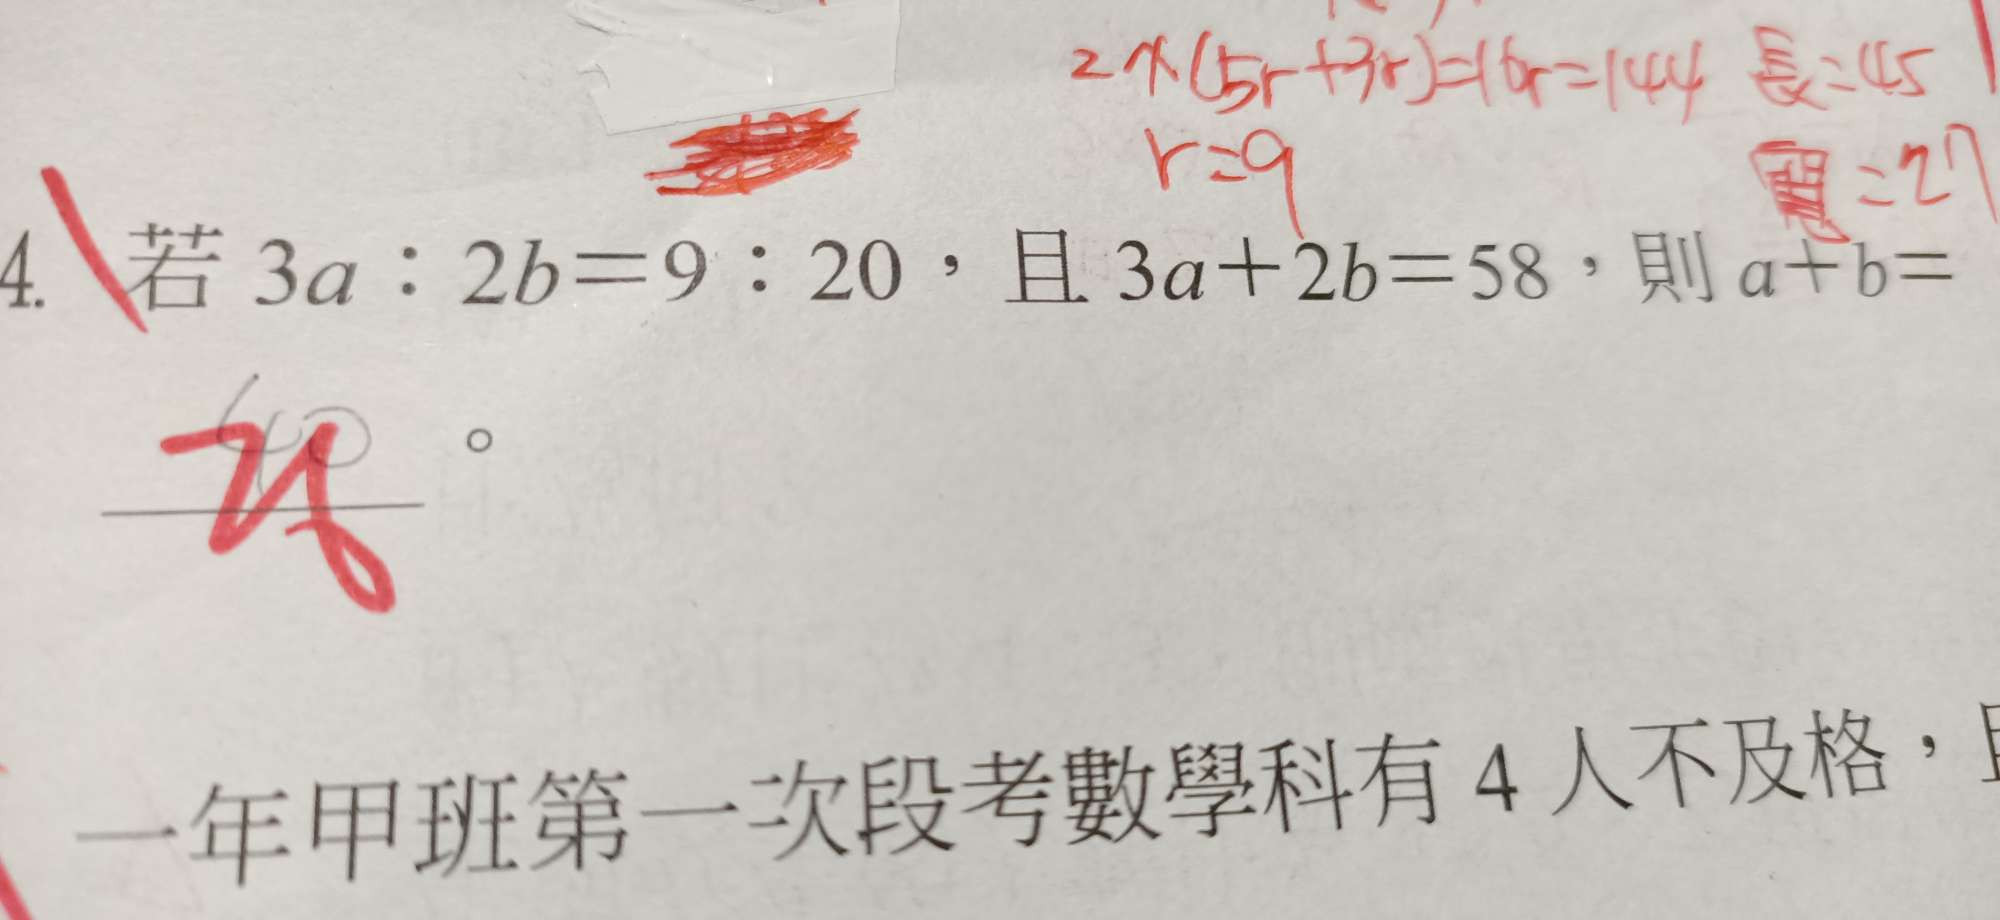 2×(5r+3r)=16r=144 長=45
r=9 寬=27
4. 若 3a：2b=9：20，且 3a+2b=58，則 a+b=
。
一年甲班第一次段考數學科有 4 人不及格，